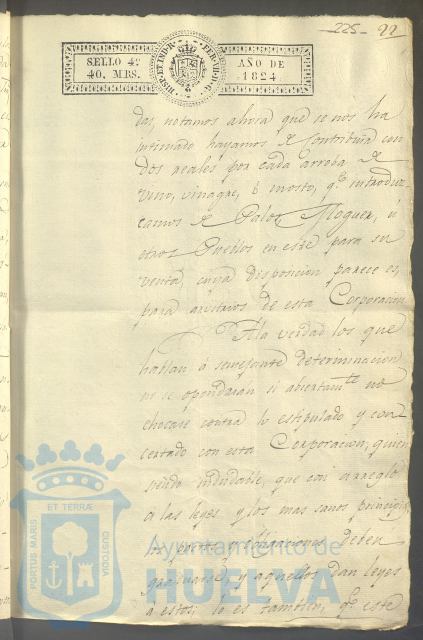 225 - 99
SELLO 4º
40. MRS.
HISP. ET IND. R. FER. VII. D. G.
AÑO DE
1824.
das, notamos ahora que se nos ha
intimado hayamos de contribuir con
dos reales por cada arroba de
vino, vinagre, ó mosto, qº introduz-
camos de Palos, Moguer, ú
otros Pueblos en este para su
venta, cuya disposicion parece es,
para arvitrios de esta Corporacion
A la verdad los que
hablan á semejante determinacion
no se opondrian si abiertamte no
chocase contra lo estipulado y con-
certado con esta Corporacion, quien
siendo indudable, que con arreglo
á las leyes y los mas sanos principios
los pactos y obligaciones deben
guardarse, y aquellos dan leyes
a estos; lo es tambien, qº este
PORTUS MARIS
ET TERRÆ
CUSTODIA
Ayuntamiento de
HUELVA